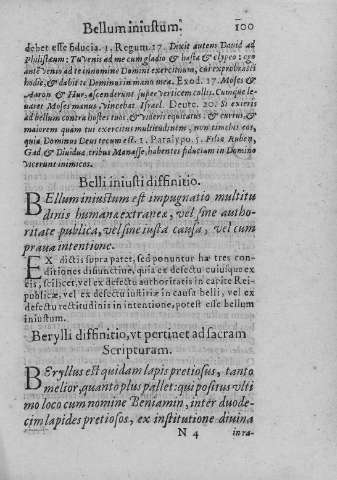 Bellum iniustum.
100
debet esse fiducia. 1. Regum. 17. Dixit autem David ad
Philistæum: Tu venis ad me cum gladio & hasta & clypeo: ego
autē venio ad te in nomine Domini exercituum, cui exprobrasti
hodie, & dabit te Dominus in manu mea. Exod. 17. Moses &
Aaron & Hur, ascenderunt super verticem collis. Cumque le-
uaret Moses manus, vincebat Israel. Deute. 20. Si exieris
ad bellum contra hostes tuos, & videris equitatus & currus, &
maiorem quam tu exercitus multitudinem, non timebis eos,
quia Dominus Deus tecum est. 1. Paralypo. 5. Filii Ruben,
Gad & Dimidia tribus Manasse, habentes fiduciam in Domino
vicerunt inimicos.
Belli iniusti diffinitio.
BEllum iniustum est impugnatio multitu
dinis humanæ extraneæ, vel sine autho-
ritate publica, vel sine iusta causa, vel cum
praua intentione.
EX dictis supra patet, sed ponuntur hæ tres con-
ditiones disiunctiue, quia ex defectu cuiusque ex
eis, scilicet, vel ex defectu authoritatis in capite Rei-
publicæ, vel ex defectu iustitiæ in causa belli, vel ex
defectu rectitudinis in intentione, potest esse bellum
iniustum.
Berylli diffinitio, vt pertinet ad sacram
Scripturam.
BEryllus est quidam lapis pretiosus, tanto
melior, quanto plus pallet: qui positus vlti
mo loco cum nomine Beniamin, inter duode-
cim lapides pretiosos, ex institutione diuina
N 4
in ra-